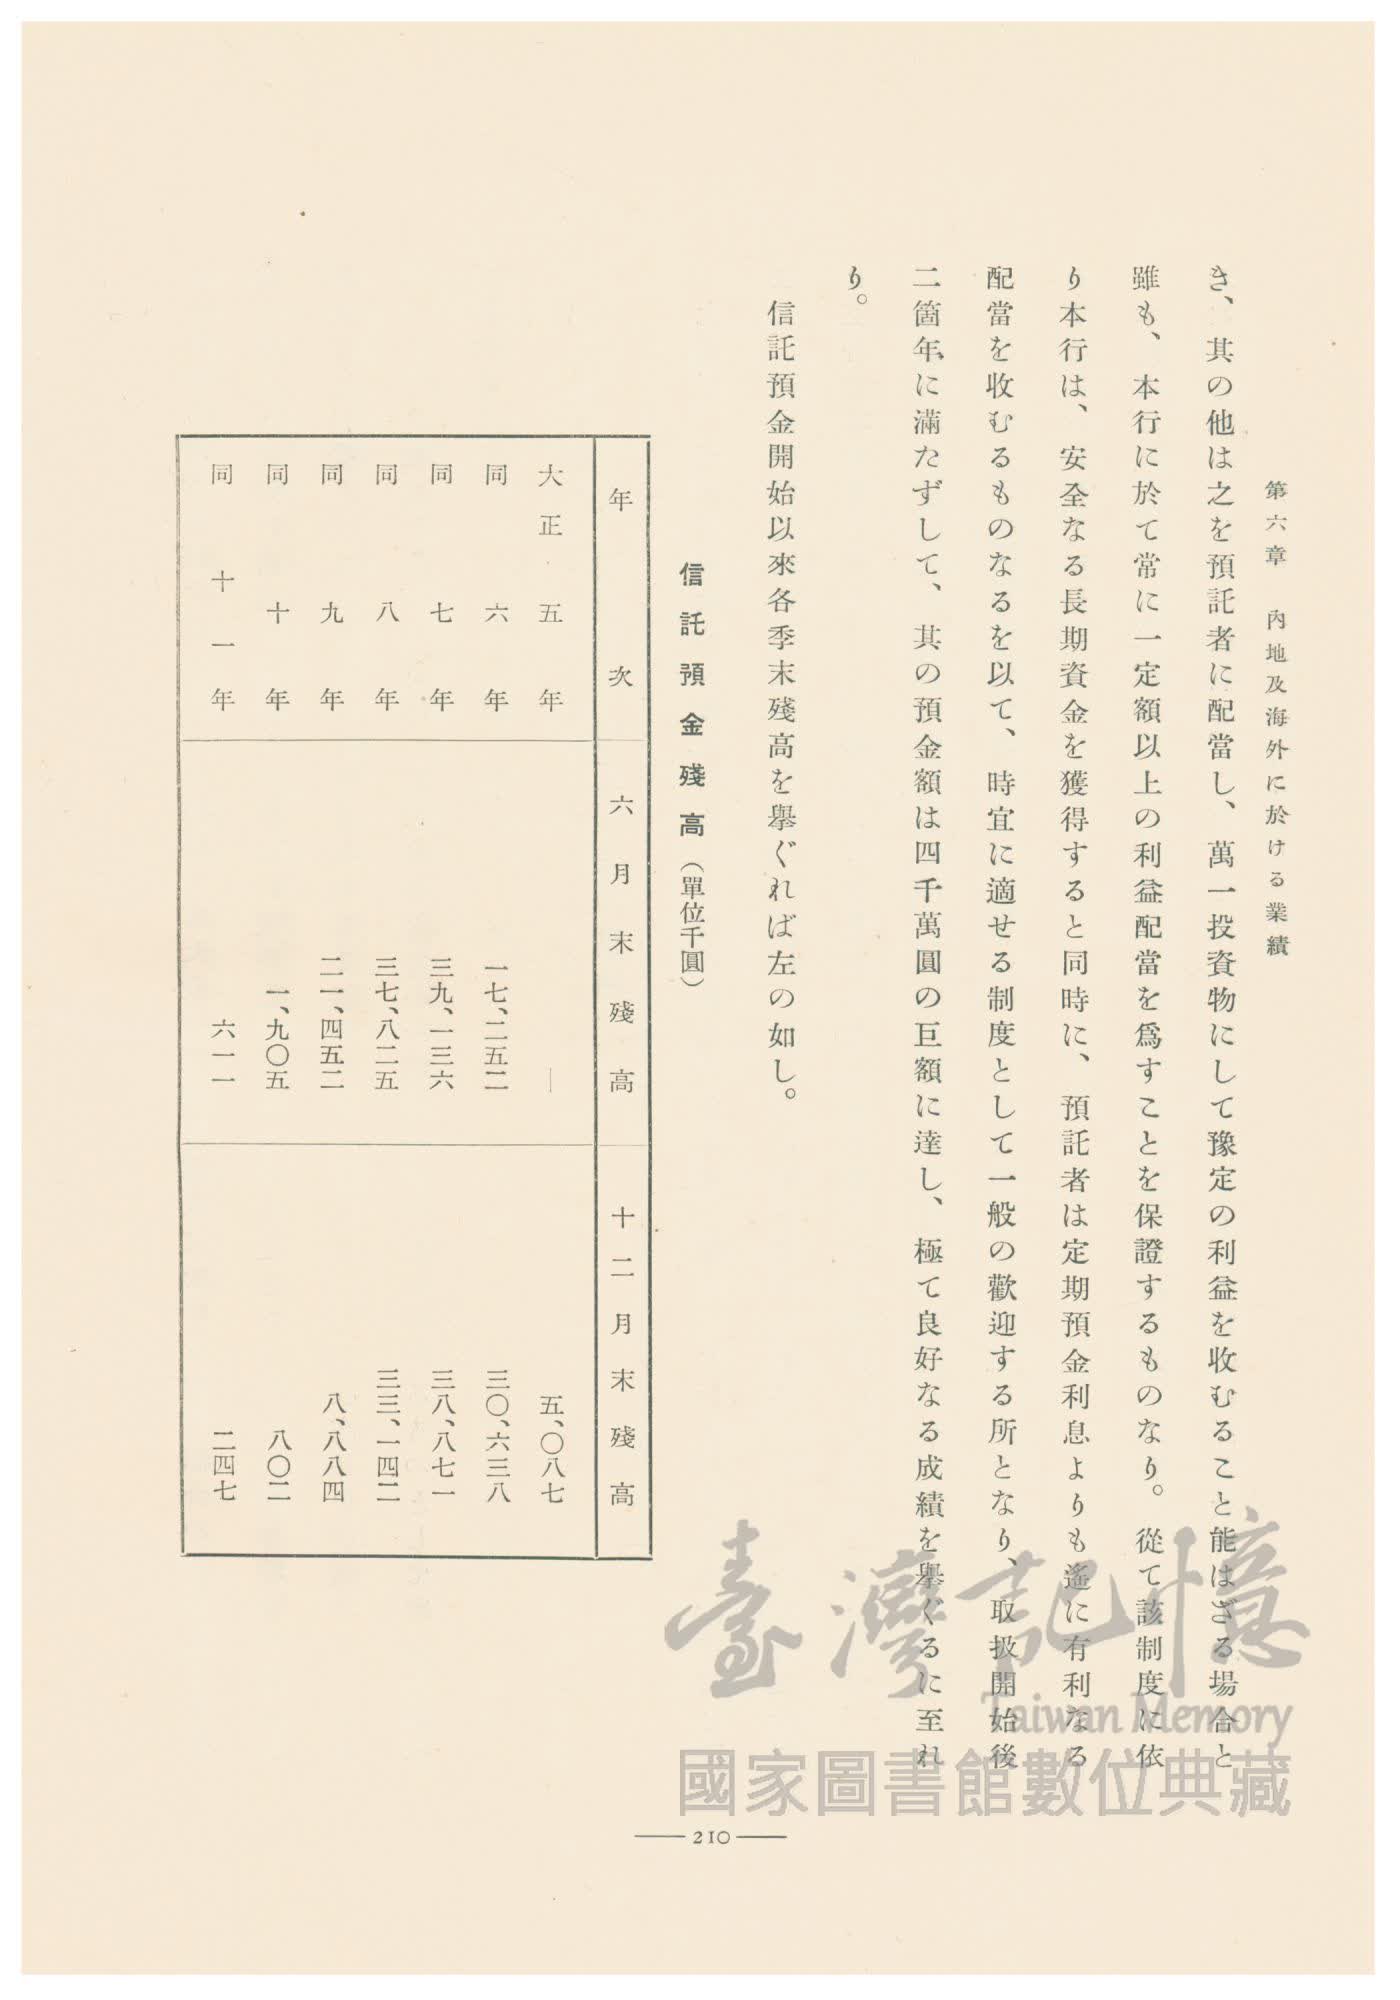 第六章　內地及海外に於ける業績
き、其の他は之を預託者に配當し、萬一投資物にして豫定の利益を收むること能はざる場合と
雖も、本行に於て常に一定額以上の利益配當を爲すことを保證するものなり。從て該制度に依
り本行は、安全なる長期資金を獲得すると同時に、預託者は定期預金利息よりも遙に有利なる
配當を收むるものなるを以て、時宜に適せる制度として一般の歡迎する所となり、取扱開始後
二箇年に滿たずして、其の預金額は四千萬圓の巨額に達し、極て良好なる成績を擧ぐるに至れ
り。
信託預金開始以來各季末殘高を擧ぐれば左の如し。
信託預金殘高（單位千圓）
年次　六月末殘高　十二月末殘高
大正五年　—　五、〇八七
同六年　一七、二五二　三〇、六三八
同七年　三九、一三六　三八、八七一
同八年　三七、八二五　三三、一四二
同九年　二一、四五二　八、八八四
同十年　一、九〇五　八〇二
同十一年　六一一　二四七
210
臺灣記憶
Taiwan Memory
國家圖書館數位典藏